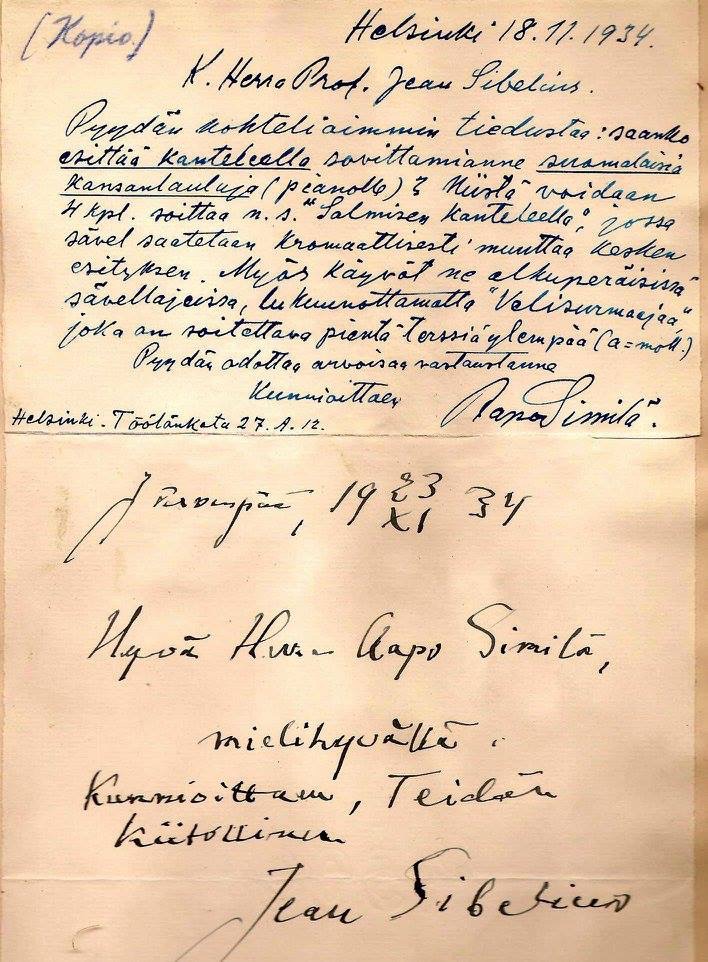 (Kopio.)
Helsinki 18.11.1934.
K. Herra Prof. Jean Sibelius.
Pyydän kohteliaimmin tiedustaa: saanko
esittää kanteleella sovittamianne suomalaisia
kansanlauluja (pianolle)? Niistä voidaan
4 kpl. soittaa n.s. "Salmisen kanteleella", jossa
sävel saatetaan kromaattisesti muuttaa kesken
esityksen. Myös käyvät ne alkuperäisissä
sävellajeissa, lukuunottamatta "Velisurmaajaa,"
joka on soitettava pientä terssiä ylempää (a=moll.)
Pyydän odottaa arvoisaa vastaustanne
Kunnioittaen
Aapo Similä.
Helsinki. Töölönkatu 27. A. 12.
Järvenpää, 19 23/XI 34
Hyvä Herra Aapo Similä,
mielihyvällä.
Kunnioittaen, Teidän
kiitollinen
Jean Sibelius